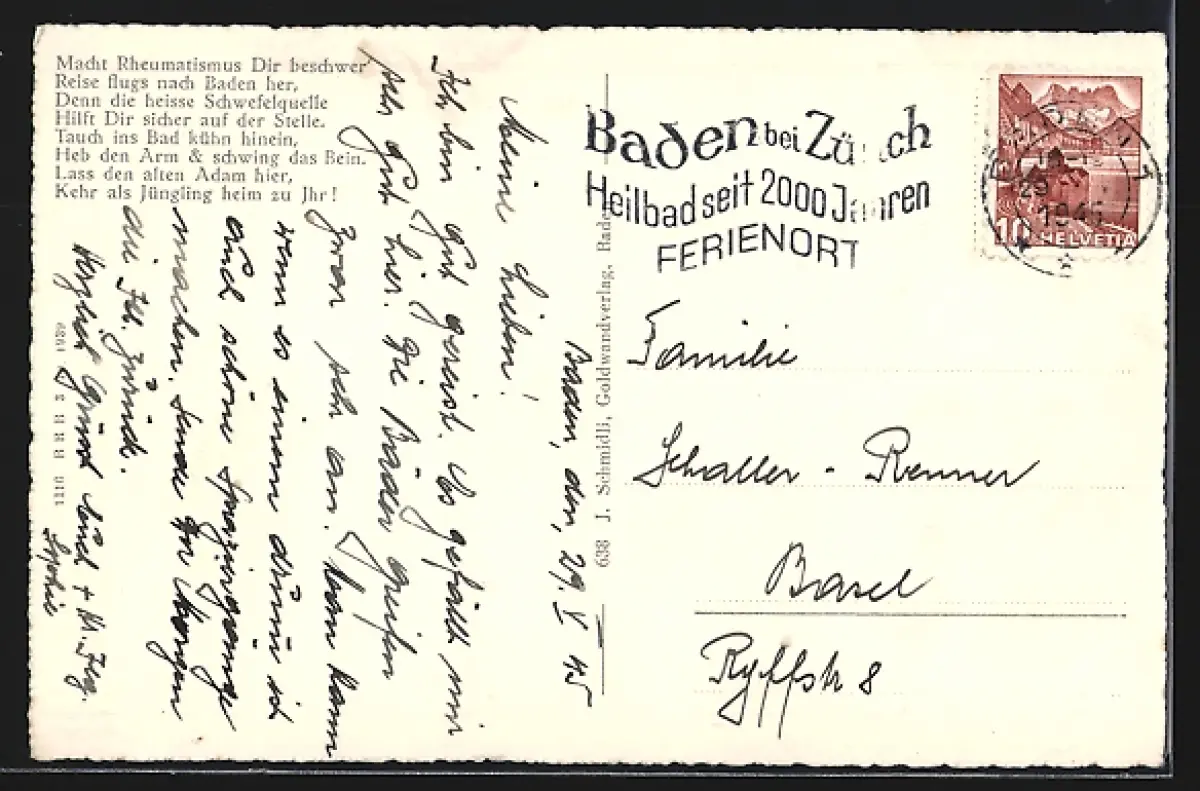 Macht Rheumatismus Dir beschwer'
Reise flugs nach Baden her,
Denn die heisse Schwefelquelle
Hilft Dir sicher auf der Stelle.
Tauch ins Bad kühn hinein,
Heb den Arm & schwing das Bein.
Lass den alten Adam hier,
Kehr als Jüngling heim zu Jhr!
Baden, den, 29. V 45
Meine Lieben!
Ich bin gut gereist. Es gefällt mir
sehr gut hier. Die Bäder greifen
zwar sehr an. Man kann
wenn es einem drum ist
auch schöne Spaziergänge
machen. Sende Morgen
die zurück.
Herzlich Grüsst Euch +
638 J. Schmidli, Goldwandverlag, Baden
1110 BRB 3 1939
Baden bei Zürich
Heilbad seit 2000 Jahren
FERIENORT
29
1945
10 HELVETIA
Familie
Schaller - Renner
Basel
Ryffstr 8